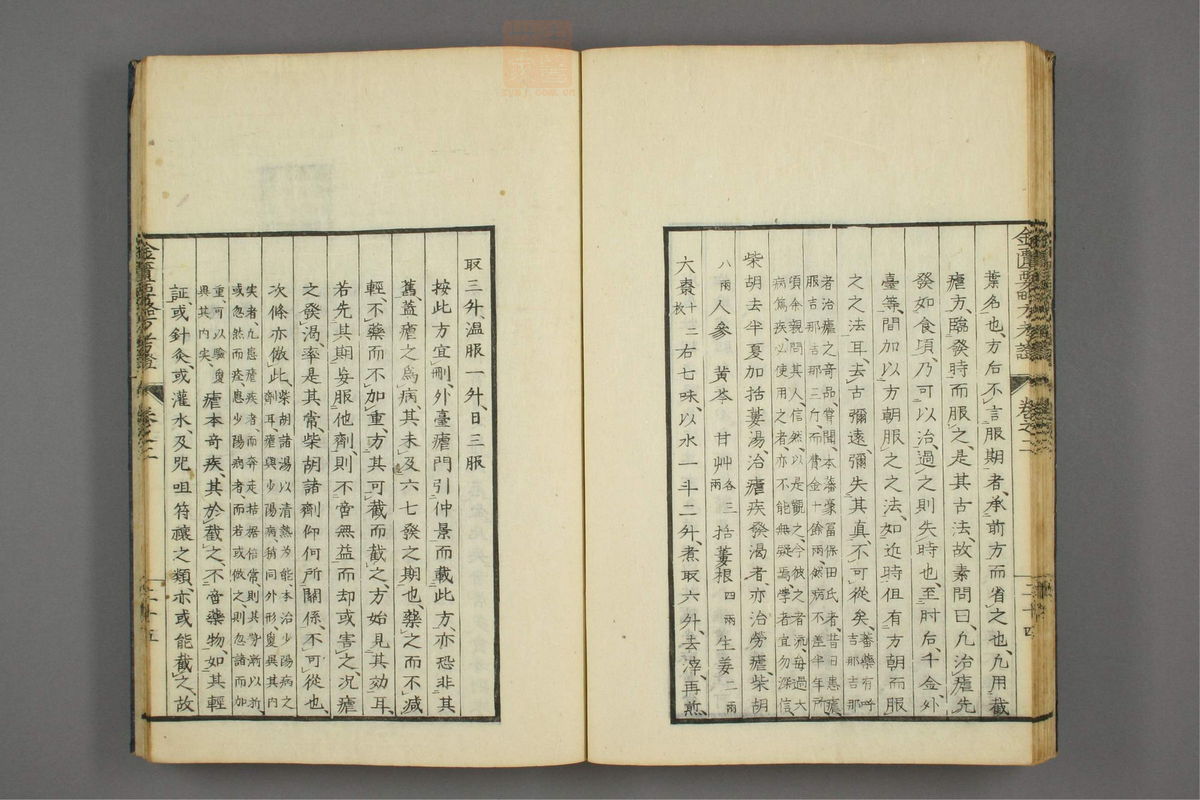 葉名也、方后不言服期者、承前方而省之也、凡用截
瘧方、臨發時而服之、是其古法、故素問曰、凡治瘧先
發如食頃、乃可以治、過之則失時也、至肘后、千金、外
臺等、間加以方朝服之之法、如近時但有方朝而服
之之法耳、去古彌遠、彌失其真、不可從矣、蕃藥有呼吉那吉那
者治瘧之奇品、嘗聞、本藩豪富保田氏者、昔日患瘧、
服吉那吉那三斤、而費金十餘兩、然病不差半年所、
頃余親問其人、信然、以是觀之、今彼之者流、每過大
病篤疾、以使用之者、亦不能無疑焉、學者宜勿深信
柴胡去半夏加括蔞湯、治瘧疾發渴者、亦治勞瘧柴胡
八兩人參 黃芩 甘艸各三兩括蔞根四兩生姜二兩
大棗十二枚右七味、以水一斗二升、煮取六升、去滓、再煎
金匱要略方考證 卷之二 二十四
取三升、温服一升、日三服
按此方宜刪、外臺瘧門引仲景而載此方、亦恐非其
舊、蓋瘧之為病、其未及六七發之期也、藥之而不減
輕、不藥而不加重、方其可截而截之、方始見其効耳、
若先其期妄服他劑、則不啻無益而却或害之、况瘧
之發渴、率是其常、柴胡諸劑仰何所關係、不可從也
次條亦倣此、柴胡諸湯以清熱為能、本治少陽病之
劑耳、瘧與少陽病、稍同外形、复異其內
実者、凡患瘧疾者、而奔走拮据倍常、則其勢漸以新
或忽然而痊、患少陽病者、而若或倣之、則忽諸而加
重、可以驗复異其内実、瘧本奇疾、其於截之、不啻藥物、如其輕
証或針灸、或灌水、及咒咀符禳之類、亦或能截之、故
金匱要略方考證 卷之二 二十五